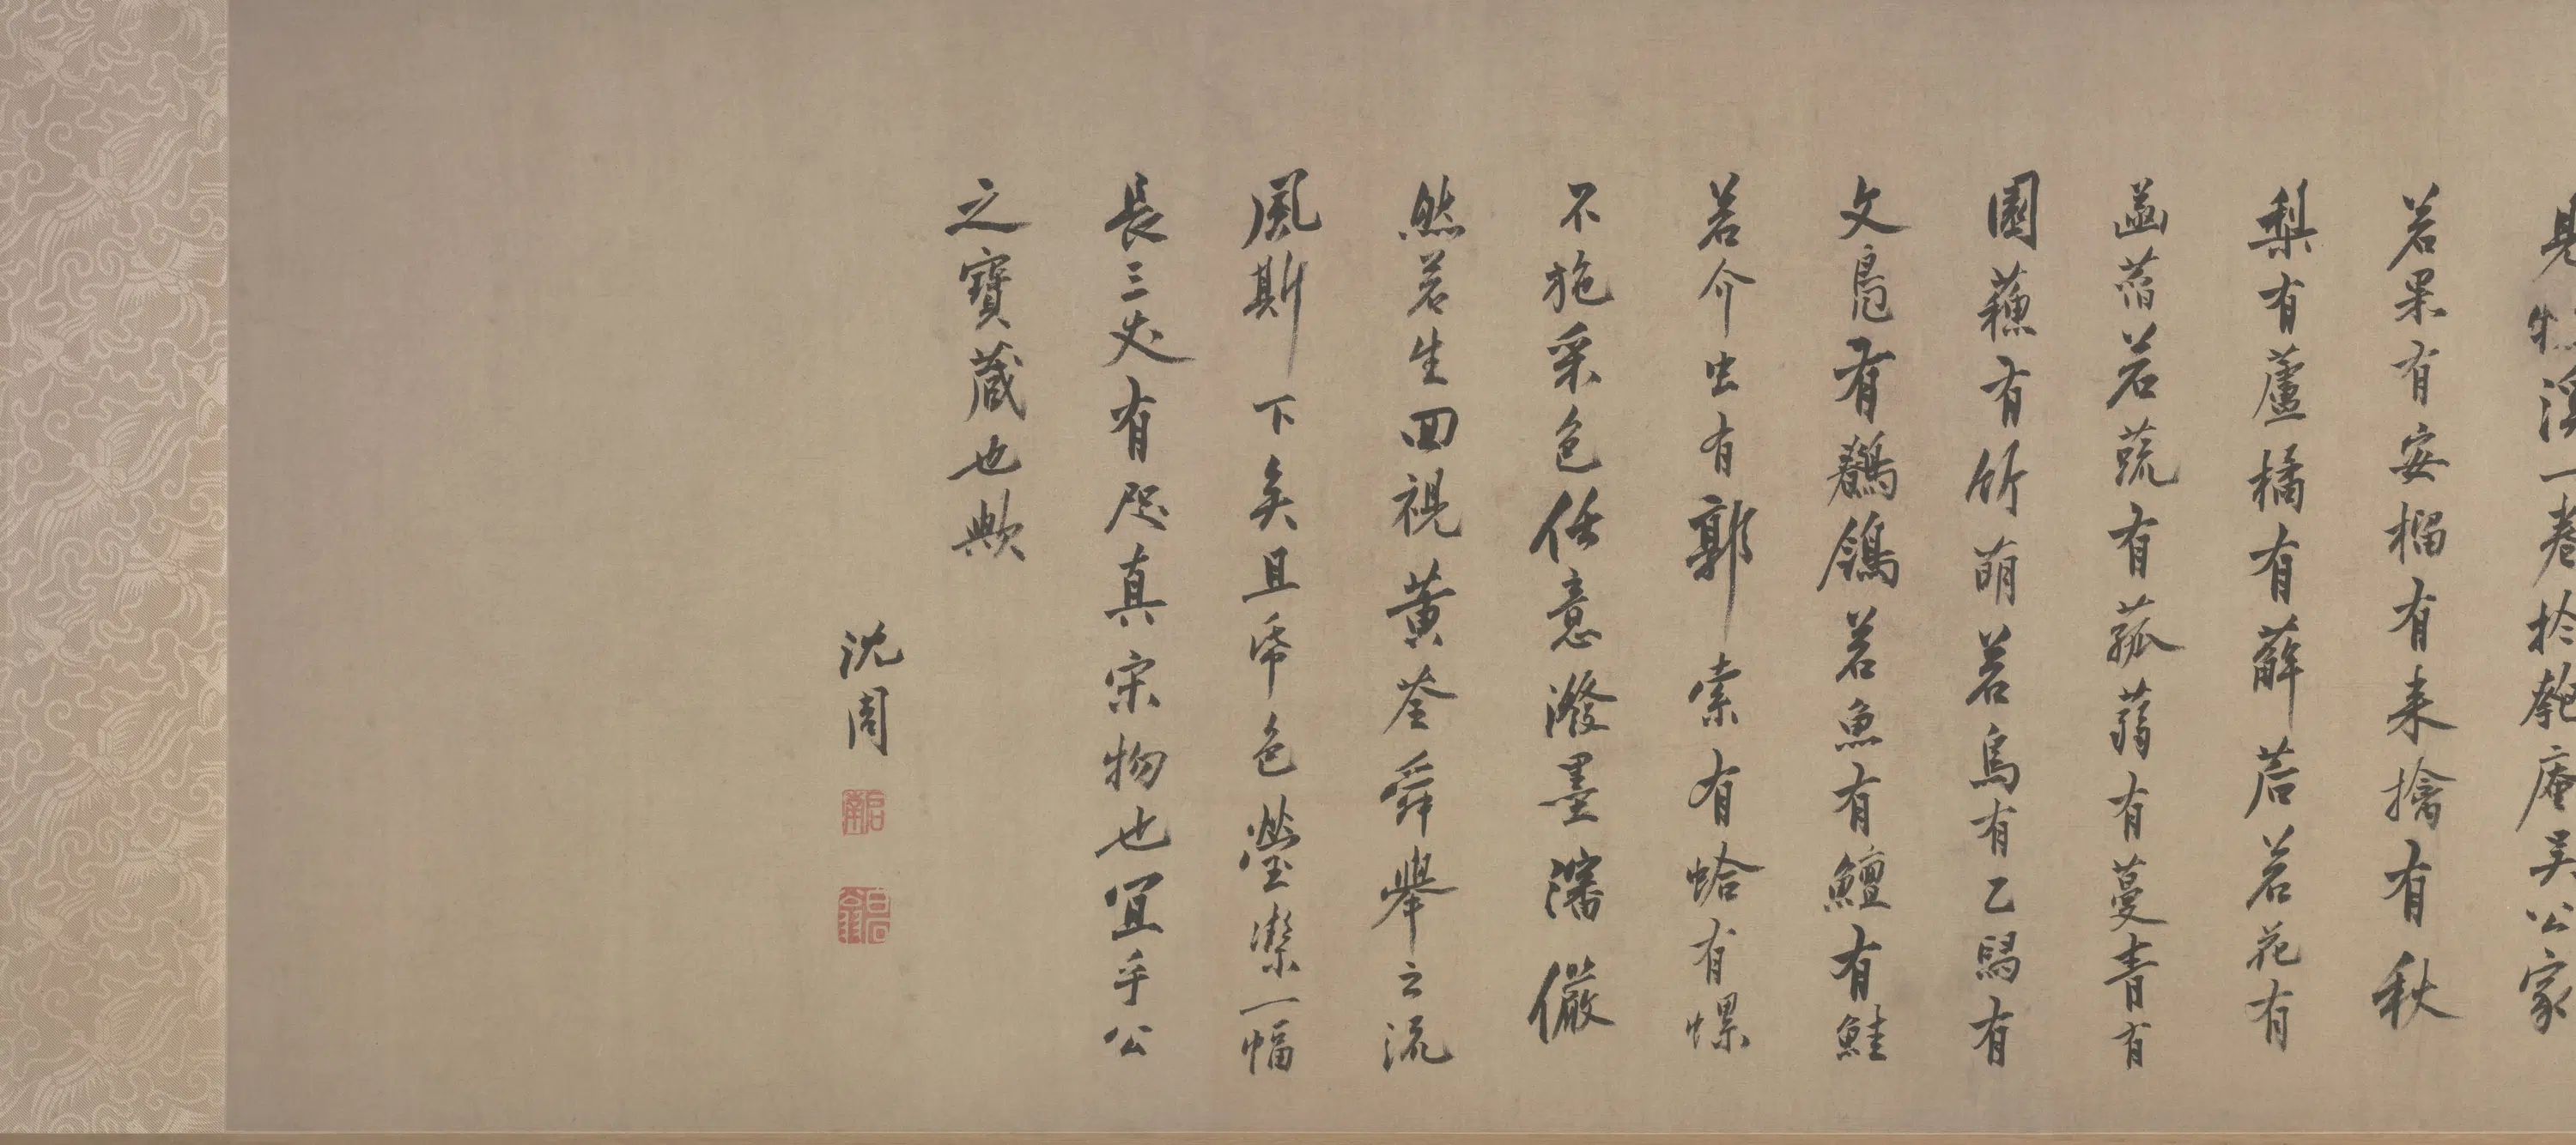 見牧溪一卷於匏庵吳公家
若果有安榴有来擒有秋
梨有蘆橘有薢茩若花有
菡萏若蔬有菰蒻有蔓青有
園蘓有竹萌若鳥有乙舄有
文鳧有鷬鴿若魚有鱣有鮭
若介虫有郭索有蛤有螺
不施采色任意潑墨瀋儼
然若生回視黄荃舜舉之流
風斯下矣且帋色瑩潔一幅
長三丈有咫真宋物也宜乎公
之寶蔵也歟
沈周